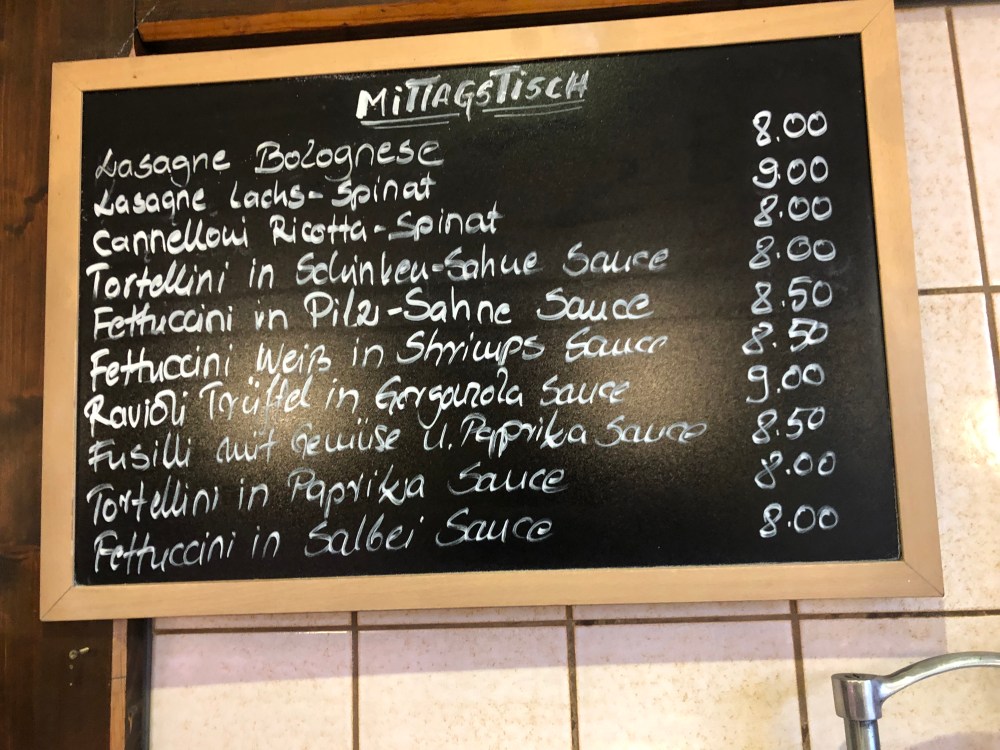 MITTAGSTISCH
Lasagne Bolognese 8.00
Lasagne Lachs-Spinat 9.00
Cannelloni Ricotta-Spinat 8.00
Tortellini in Schinken-Sahne Sauce 8.00
Fettuccini in Pilz-Sahne Sauce 8.50
Fettuccini Weiß in Shrimps Sauce 8.50
Ravioli Trüffel in Gorganzola Sauce 9.00
Fusilli mit Gemüse u. Papprika Sauce 8.50
Tortellini in Paprika Sauce 8.00
Fettuccini in Salbei Sauce 8.00